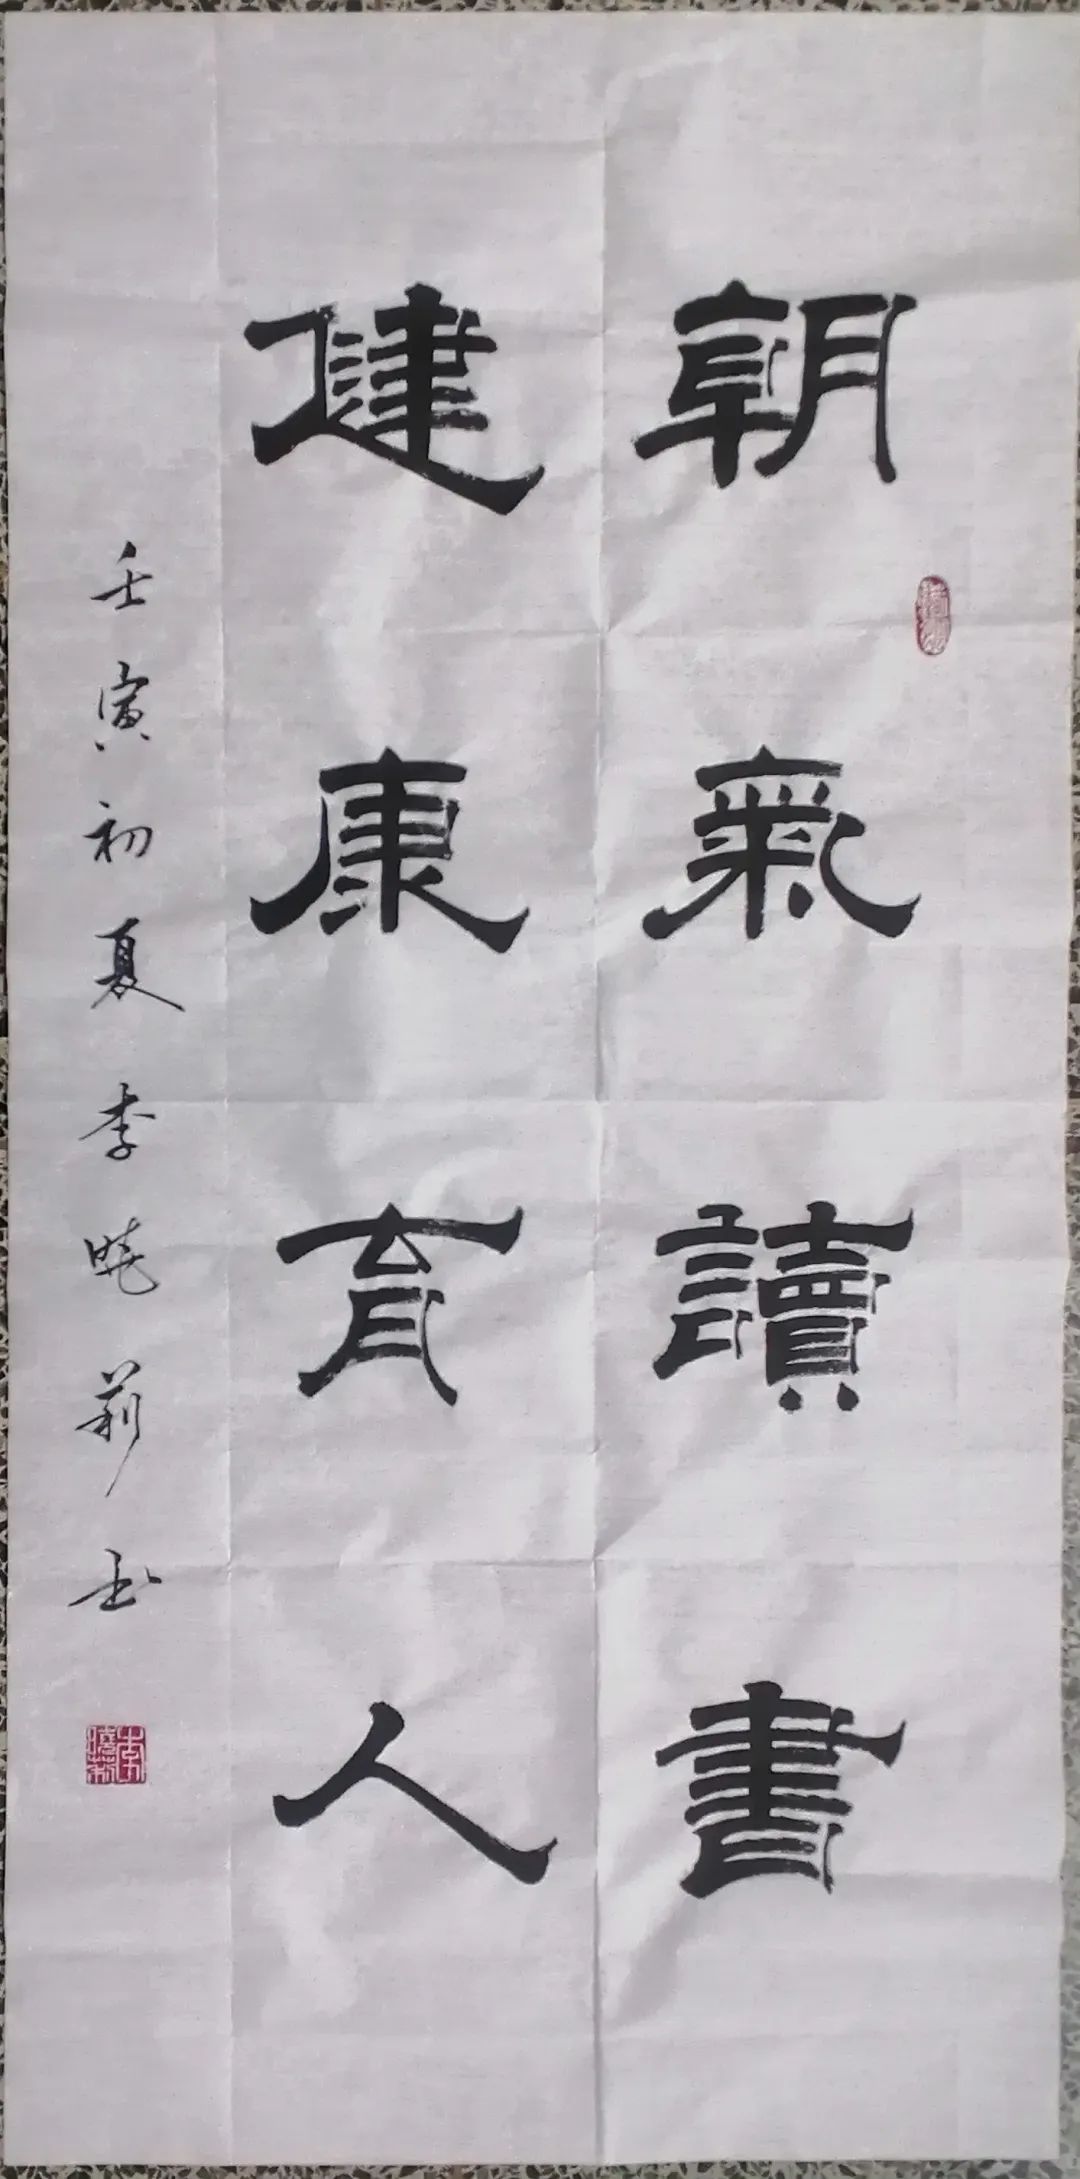 朝氣讀書
健康育人
壬寅初夏李曉莉书
李曉莉